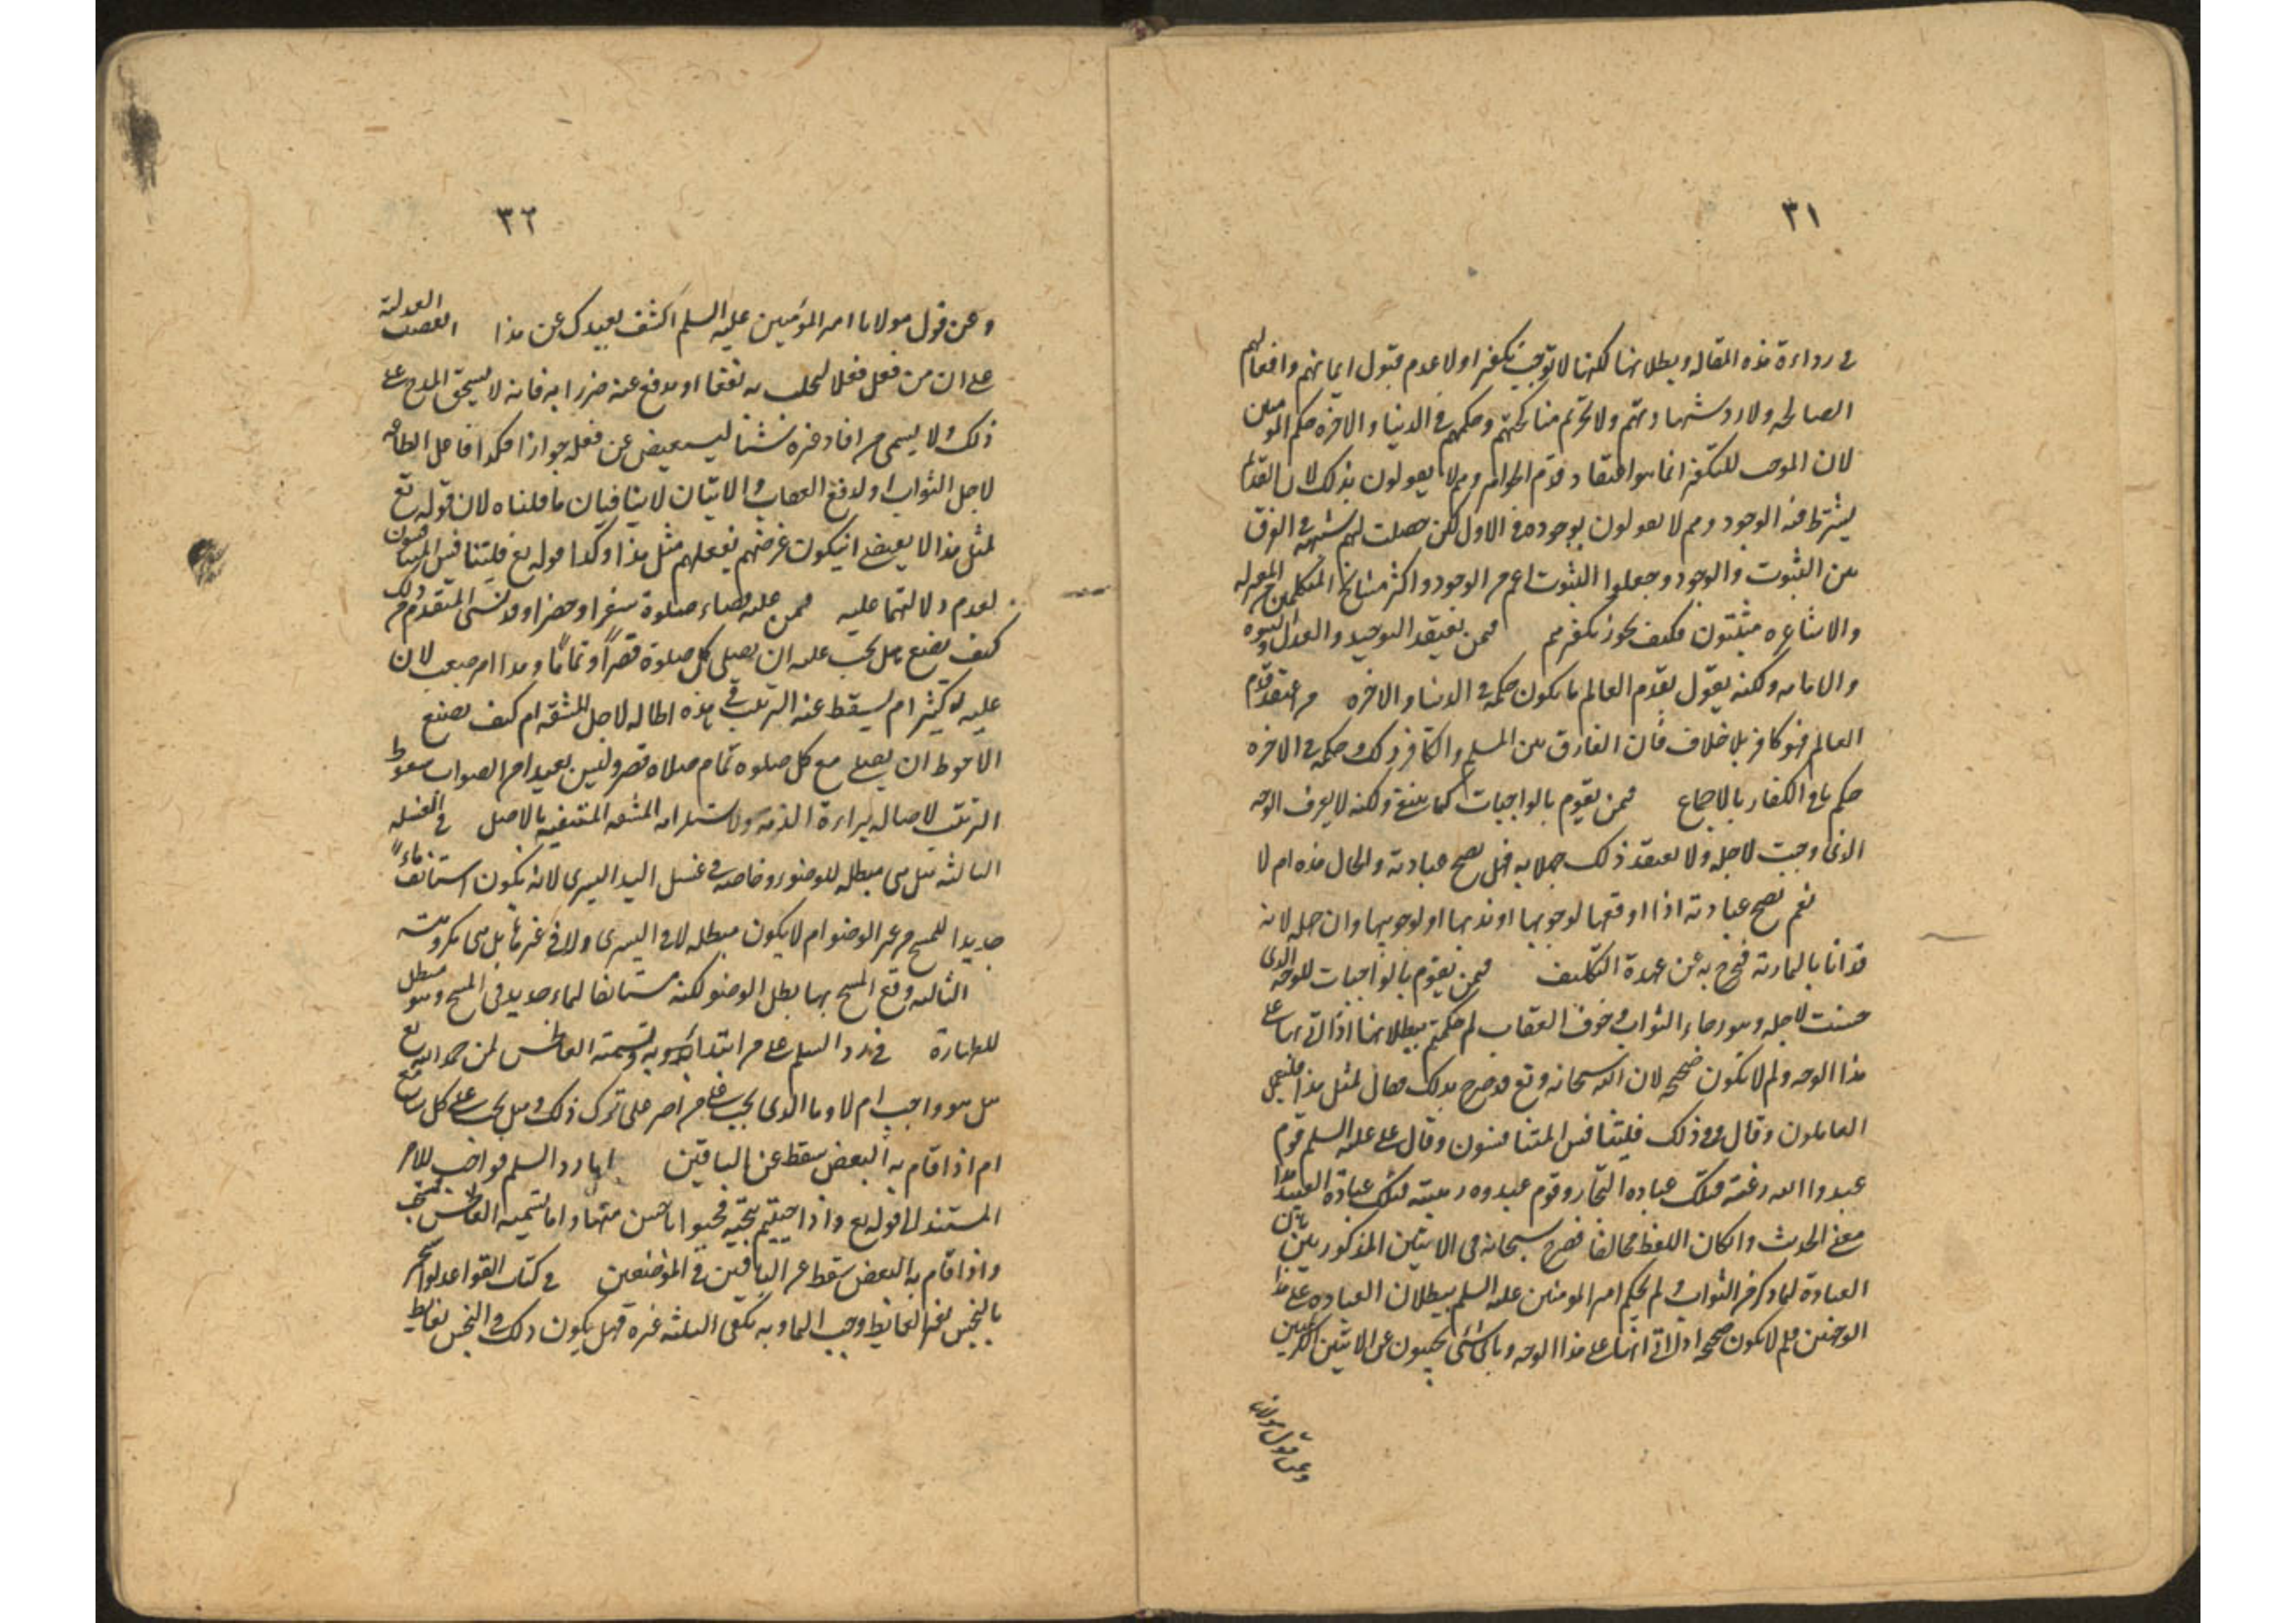 ٣١
في رداءة هذه المقاله وبطلانها لكنها لا توجب تكفيرا ولا عدم قبول ايمانهم وافعالهم
الصالحه ولا رد شهادتهم ولا تحرم مناكحتهم وحكمهم في الدنيا والاخرة حكم المومنين
لان الموجب للتكفير انما هو اعتقاد قدم الجواهر وهم لا يقولون بذلك لان القديم
يشترط فيه الوجود وهم لا يقولون بوجوده في الاول لكن حصلت لهم شبهة في الفرق
بين الثبوت والوجود وجعلوا الثبوت اعم من الوجود واكثر مشايخ المتكلمين من المعتزله
والاشاعره مثبتون فكيف يجوز تكفيرهم فيمن يعتقد التوحيد والعدل والنبوة
والامامه ولكنه يقول بقدم العالم ما يكون حكمه في الدنيا والاخره من اعتقد قدم
العالم فهو كافر بلا خلاف فان الفارق بين المسلم والكافر ذلك وحكمه في الاخره
حكم باقي الكفار بالاجماع فيمن يقوم بالواجبات كما ينبغي ولكنه لا يعرف الوجه
الذي وجبت لاجله ولا يعتقد ذلك جهلا به فهل يصح عبادته والحال هذه ام لا
نعم تصح عبادته اذا اوقعها لوجوبها او ندبها او لوجوبهما وان جهله لانه
قد اتا بالمأمور به فخرج به عن عهدة التكليف فيمن يقوم بالواجبات للوجه الذي
حسنت لاجله وهو رجاء الثواب وخوف العقاب لم حكمتم ببطلانها اذا اتى بها على
هذا الوجه ولم لا تكون صحيحه لان الله سبحانه وتع قد صرح بذلك فقال لمثل هذا فليعمل
العاملون وقال وفي ذلك فليتنافس المتنافسون وقال علي عليه السلم قوم
عبدوا الله رغبة فتلك عباده التجار وقوم عبدوه رهبته فتلك عبادة العبيد هذا
معنى الحديث وان كان اللفظ مخالفا فصرح سبحانه في الايتين المذكورتين بان
العبادة لما ذكر من الثواب ولم يحكم امير المومنين عليه السلم ببطلان العباده على هذا
الوجهين فلم لا يكون صحيحه اذا اتى بها على هذا الوجه وباي شئ يجيبون عن الايتين الكريمتين
وعن قول مولانا
٣٢
وعن قول مولانا امير المؤمنين عليه السلم اكشف لعبدك عن هذا اتفقت العدلية
على ان من فعل فعلا ليجلب به نفعا او يدفع عنه ضررا به فانه لا يستحق المدح على
ذلك ولا يسمى من افاد غيره شيئا ليستعيض عن فعله جوادا فكذا فاعل الطاعه
لاجل الثواب او لدفع العقاب والايتان لا ينافيان ما قلناه لان قوله تع
لمثل هذا لا يقتضي ان يكون غرضهم بفعلهم مثل هذا وكذا قوله تع فليتنافس المتنافسون
لعدم دلالتهما عليه فيمن عليه قضاء صلوة سفرا وحضرا وقد نسى المتقدم من ذلك
كيف يصنع هل يجب عليه ان يصلي كل صلوة قصراً وتماماً وهذا امر صعب لان
عليه كثير ام يسقط عنه الترتيب في هذه الحالة لاجل المشقه ام كيف يصنع
الاحوط ان يصلي مع كل صلوه تمام صلاه قصر وليس بعيدا من الصواب سقوط
الترتيب لاصاله براءة الذمه ولاستلزامه المشقه المنتفيه بالاصل في الغسله
الثالثه هل هي مبطله للوضوء وخاصه في غسل اليد اليسرى لانه يكون استانف ماءً
جديدا للمسح من غير الوضوء ام لا يكون مبطله لا في اليسرى ولا في غيرها بل هي مكروهته
الثالثه وقع المسح بها بطل الوضو لكنه مستانفا لماء جديد في المسح وهو مبطل
للطهارة في رد السلم على من ابتدا به وتسميته العاطس لمن حمد الله تع
هل هو واجب ام لا وما الذي يجب على من اصر على ترك ذلك وهل يجب على كل سامع
ام اذا قام به البعض سقط عن الباقين اما رد السلم فواجب للامر
المستند الى قوله تع واذا حييتم بتحية فحيوا باحسن منها واما تسميه العاطس فمستحب
واذا قام به البعض سقط عن الباقين في الموضعين في كتاب القواعد لو استنجى
بالنجس بغير الغائط وجب الماء وبه يكفي الثلثه غيره فهل يكون ذلك في النجس بغايط